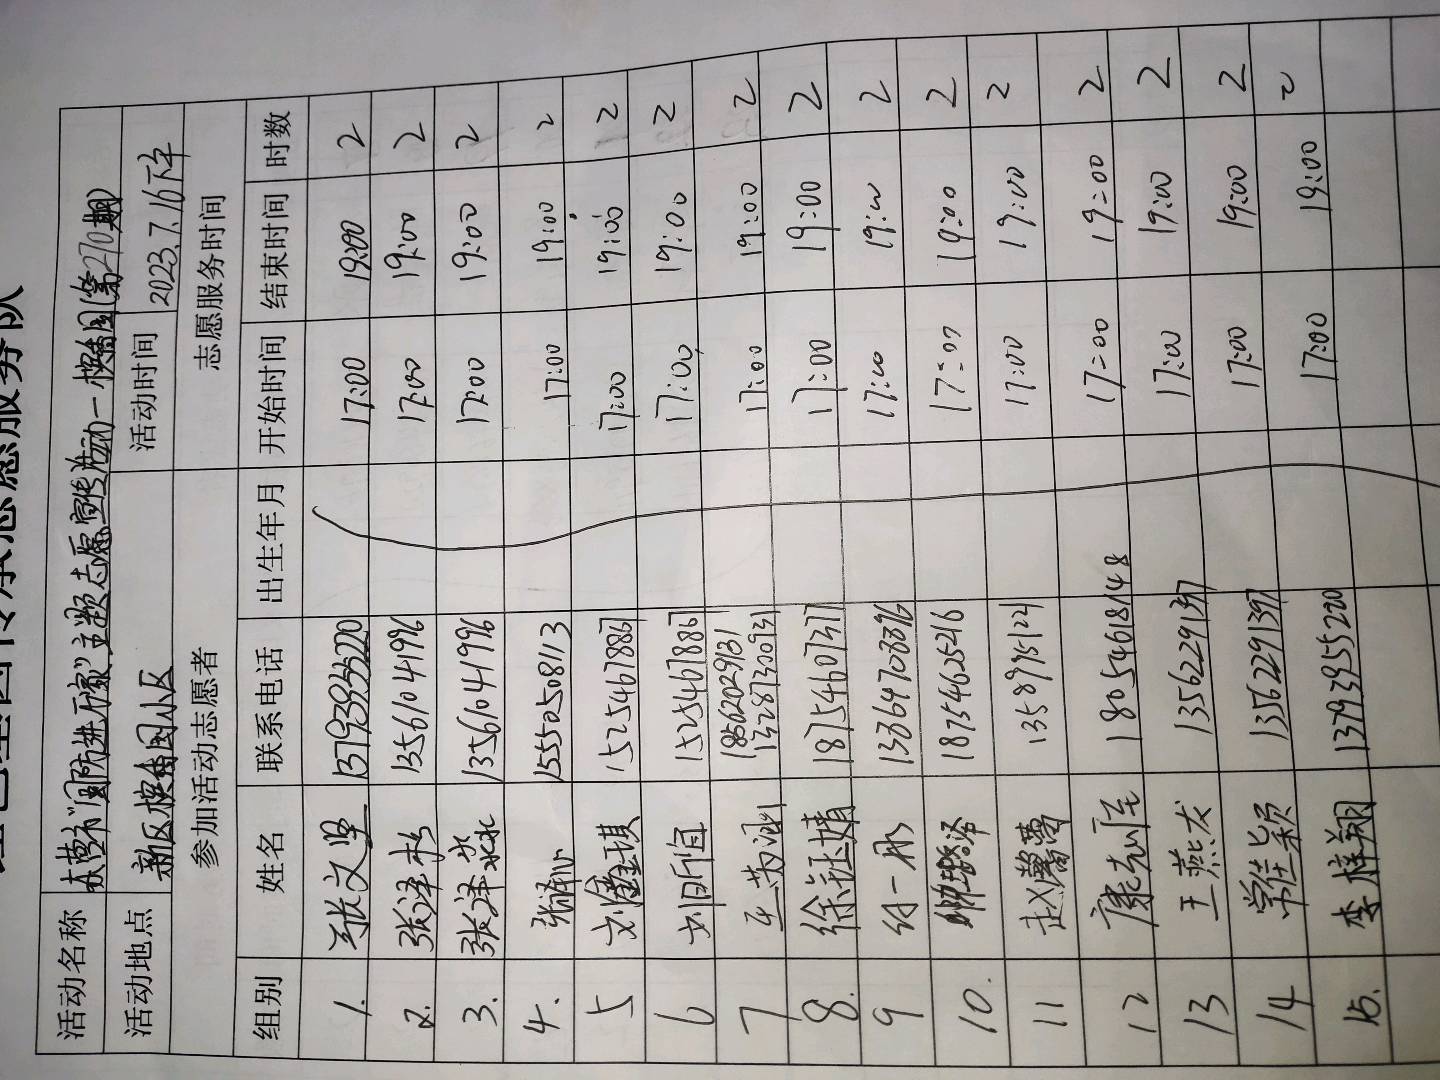 红色基因传承志愿服务队
活动名称 "国防进万家"主题志愿宣传活动一槟香园(第270期)
活动地点 新区槟香园小区 活动时间 2023.7.16下午
参加活动志愿者 志愿服务时间
组别 姓名 联系电话 出生年月 开始时间 结束时间 时数
1. 张文星 17:00 19:00 2
2. 张泽杉 13561041996 17:00 19:00 2
3. 张泽淼 13561041996 17:00 19:00 2
4. 15550508113 17:00 19:00 2
5 刘鑫琪 15254678867 17:00 19:00 2
6 刘昕宜 15254678867 17:00 19:00 2
7 18562029131 13287320931 17:00 19:00 2
8. 徐钰婧 18754607377 17:00 19:00 2
9 付一彤 13364708376 17:00 19:00 2
10. 18754625216 17:00 19:00 2
11 赵馨蕾 13589975124 17:00 19:00 2
12 康志臣 18054618148 17:00 19:00 2
13 王燕龙 13562291397 17:00 19:00 2
14 常佳颖 13562291397 17:00 19:00 2
15. 李梓翔 13793955220 17:00 19:00